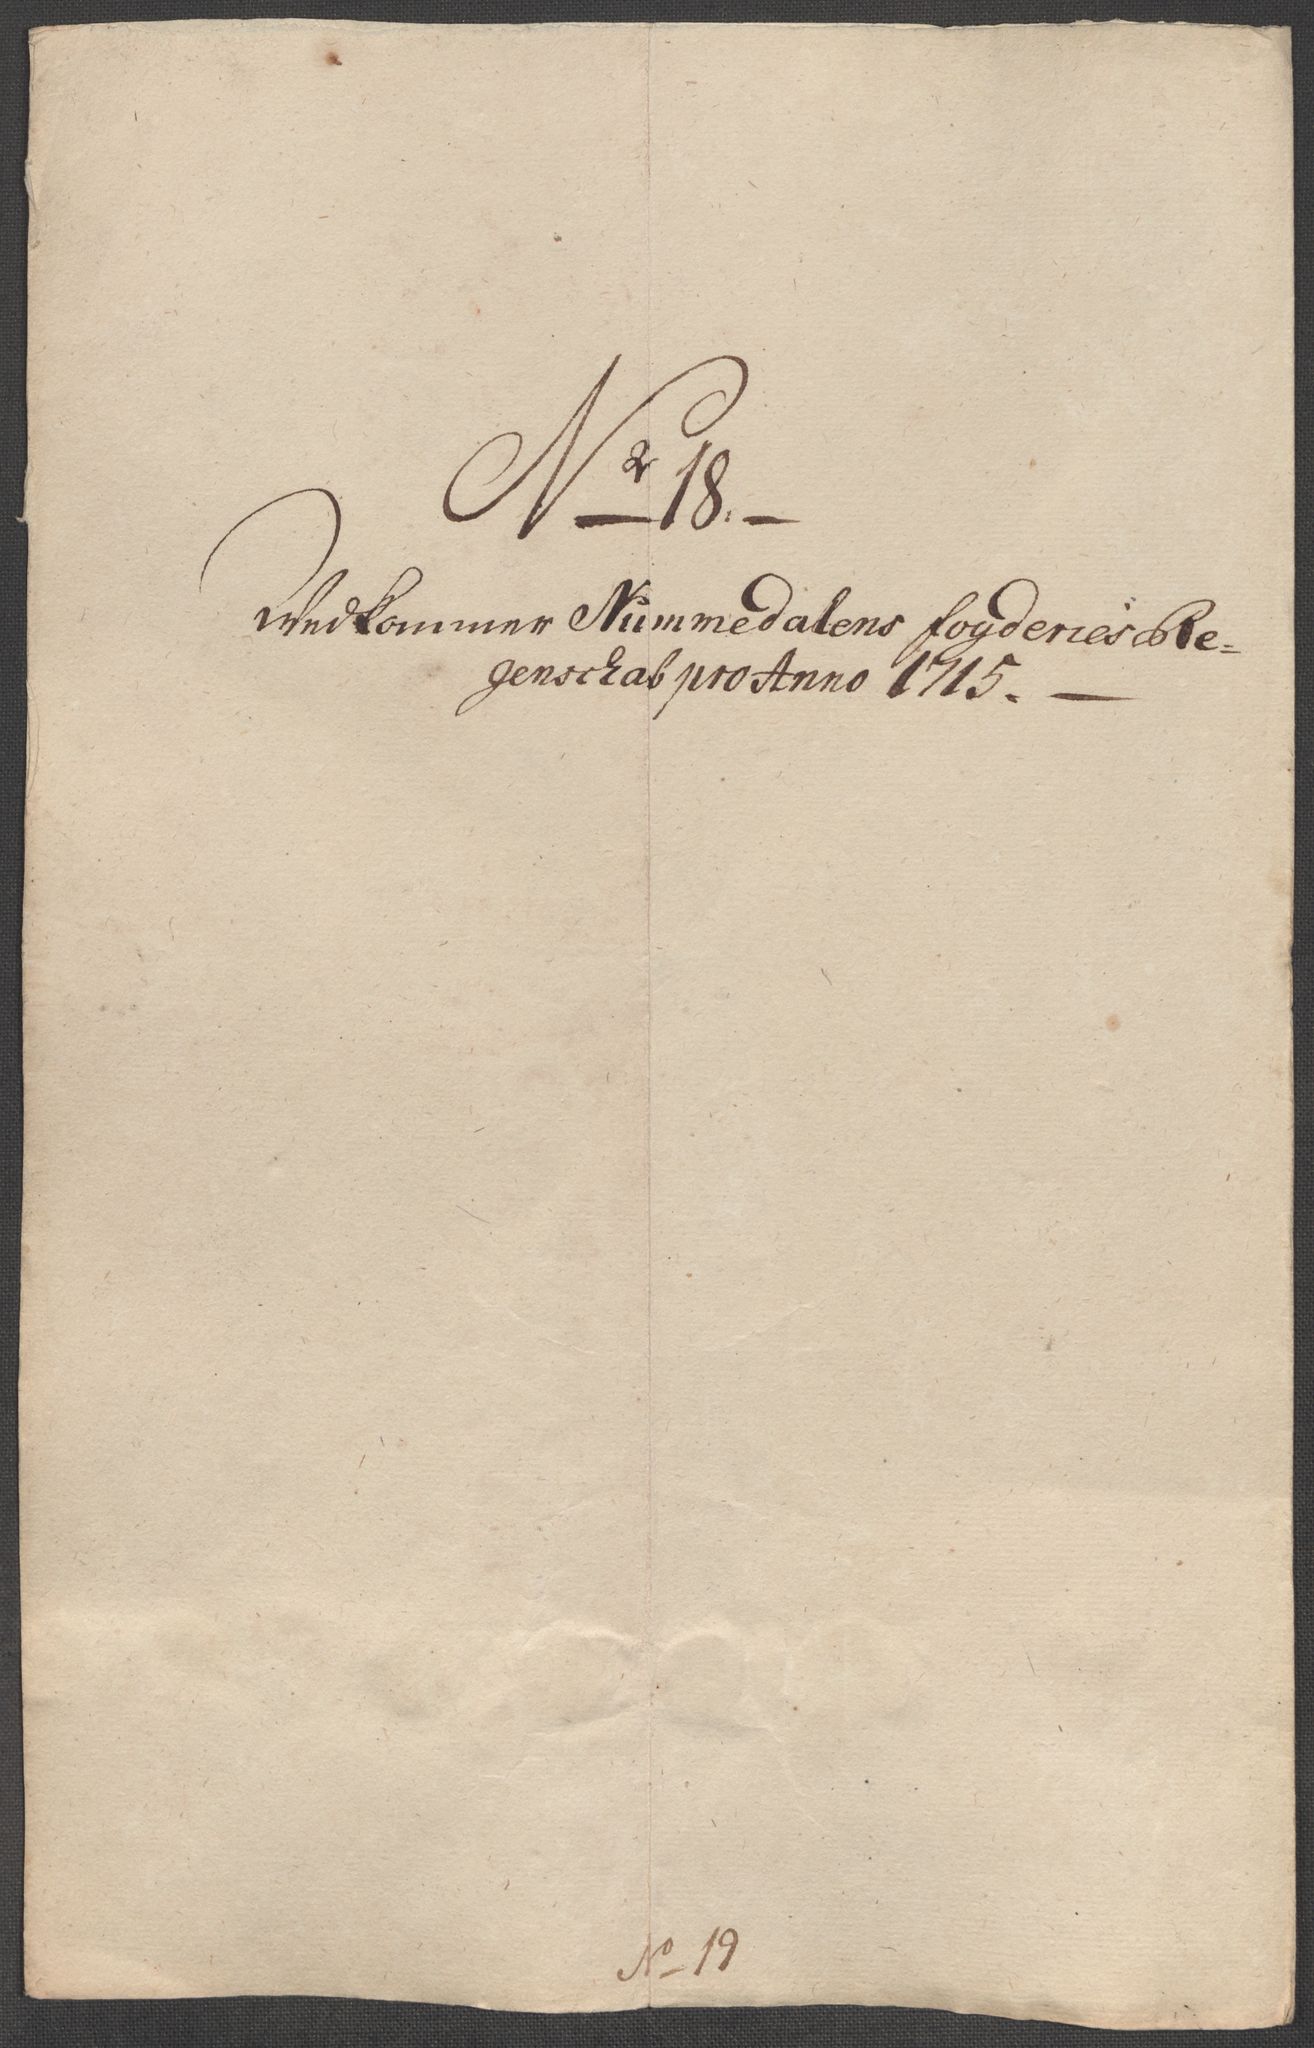 Nr 18.
Wedkommer Nummedalens fogderies Re-
genschab pro Anno 1715.
No 19